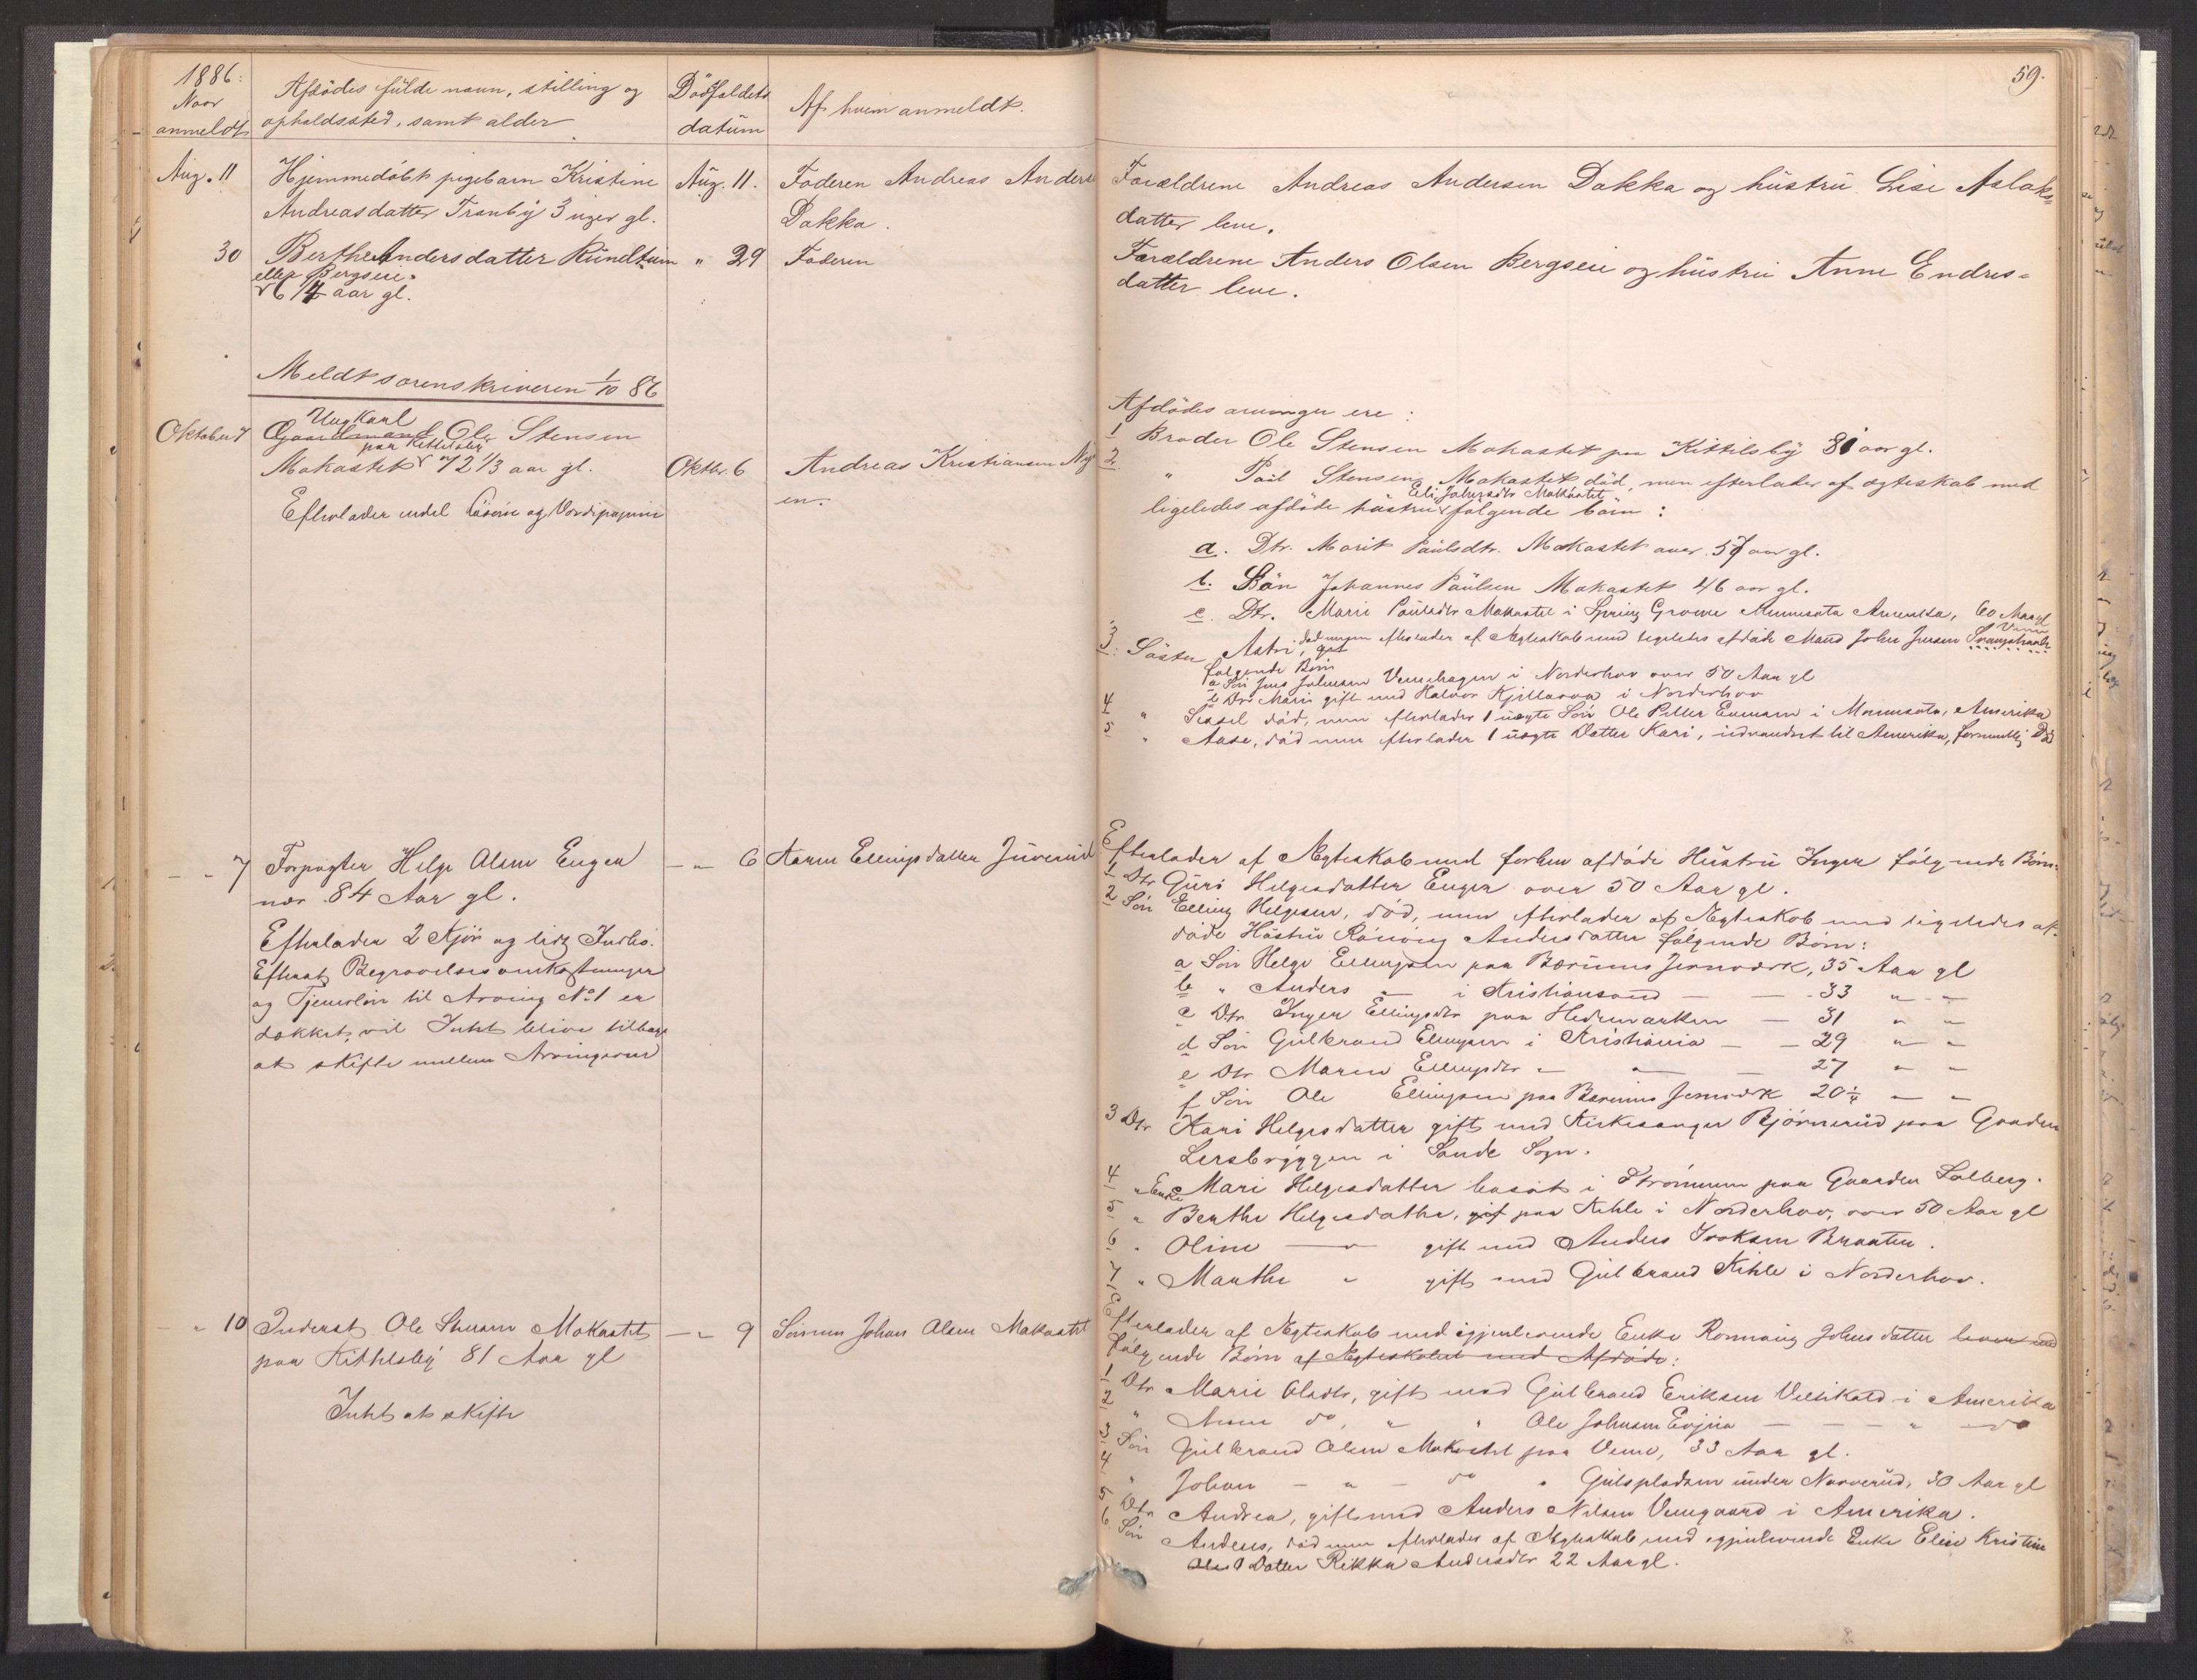 1886:
Naar
anmeldt
Afdödes fulde navn, stilling og
opholdssted, samt alder
Dödsfaldets
datum
Af hvem anmeldt.
59.
Aug. 11
Hjemmedöbt pigebarn Kristine
Andreasdatter Tranby 3 uger gl.
Aug. 11.
Faderen Andreas Anders
Dakka.
Forældrene Andreas Andersen Dakka og hustru Lise Aslaks=
datter leve.
30
Berthe Andersdatter Rundtum
eller Bergseie.
6 1/4 aar gl.
" 29
Faderen
Forældrene Anders Olsen Bergseie og hustru Anne Endres=
datter leve.
Meldt sorenskriveren 1/10 86
Oktober 7
Ungkarl
Gaardmand Ole Stensen
paa Kittelsby
Makastet 72 1/3 aar gl.
Efterlader endel Lösöre og Værdipapirer
Oktbr. 6
Andreas Kristiansen
en.
Afdödes arvinger ere:
1 Broder Ole Stensen Makastet paa Kittilsby 81 aar gl.
2 " Paul Stensen Makastet död, men efterlader af ægteskab med
Eli Johnsdtr Makastet
ligeledes afdöde hustru følgende börn:
a. Dtr. Marit Paulsdtr. Makastet over 57 aar gl.
b. Sön Johannes Paulsen Makastet 46 aar gl.
c. Dtr. Marie Paulsdtr Makastet i Spring Growe Minnesota Amerika, 60 Aar gl
3. Söster Astri, död men efterlader af Ægteskab med ligeledes afdöde Mand John Jensen
følgende Börn
a Sön Jens Johnsen Vemehagen i Norderhov over 50 Aar gl
b Dtr Mari gift med Halvor i Norderhov
4 " Sissel död, men efterlader 1 uægte Sön Ole Peller Enman i Minnesota, Amerika
5 " Aase, död men efterlader 1 uægte Datter Kari, udvandret til Amerika, formentlig Död
- " 7
Forpagter Helge Olsen Enger
nær 84 Aar gl.
Efterlader 2 Kjör og lidt Indbo.
Efterat Begravelsesomkostninger
og Tjenerlön til Arving No 1 er
dækket, vil Intet blive tilbage
at skifte mellem Arvingerne
- " 6
Aaren Ellingsdatter Juverud
Efterlader af Ægteskab med forhen afdöde Hustru Inger følgende Börn:
1 Dtr Guri Helgesdatter Enger over 50 Aar gl.
2 Sön Elling Helgesen, död, men efterlader af Ægteskab med ligeledes af-
döde Hustru Rönnöug Andersdatter følgende Börn:
a Sön Helge Ellingsen paa Bærums Jernværk, 35 Aar gl
b " Anders - i Kristiansand - - 33 " -
c Dtr Inger Ellingsdtr paa Hedemarken - 31 " "
d Sön Gulbrand Ellingsen i Kristiania - - 29 " "
e Dtr Maren Ellingsdtr - " - 27 " "
f Sön Ole Ellingsen paa Bærums Jernværk 20 1/4 " "
3 Dtr Kari Helgesdatter gift med Kirkesanger Bjørnerud paa Gaarden
Lersbryggen i Sande Sogn.
4 " Enke Mari Helgesdatter bosat i Strömmen paa Gaarden Solberg.
5 " Berthe Helgesdatter, gif paa Kihle i Norderhov, over 50 Aar gl
6 " Oline - " gift med Anders Isaksen Braaten.
7 " Marthe " gift med Gulbrand Kihle i Norderhov.
- " 10
Inderst Ole Stensen Makastet
paa Kittelsby 81 Aar gl
Intet at skifte
- " 9
Sönnen Johan Olsen Makastet
Efterlader af Ægteskab med igjenlevende Enke Rønnaug Johnsdatter
følgende Börn af Ægteskabet med Afdöde:
1 Dtr Marie Olsdtr, gift med Gulbrand Eriksen Vellikold i Amerika
2 " Anne do, " " Ole Johnsen Evjua - - - " do
3 Sön Gulbrand Olsen Makastet paa Veme, 33 Aar gl.
4 " Johan - " - do " Gulspladsen under Narverud, 30 Aar gl
5 Dtr Andrea, gift med Anders Nilsen Vemgaard i Amerika.
6 Sön Anders, död men efterlader af Ægteskab med igjenlevende Enke Elise Kristine
1 Datter Rikka Andersdtr 22 Aar gl.